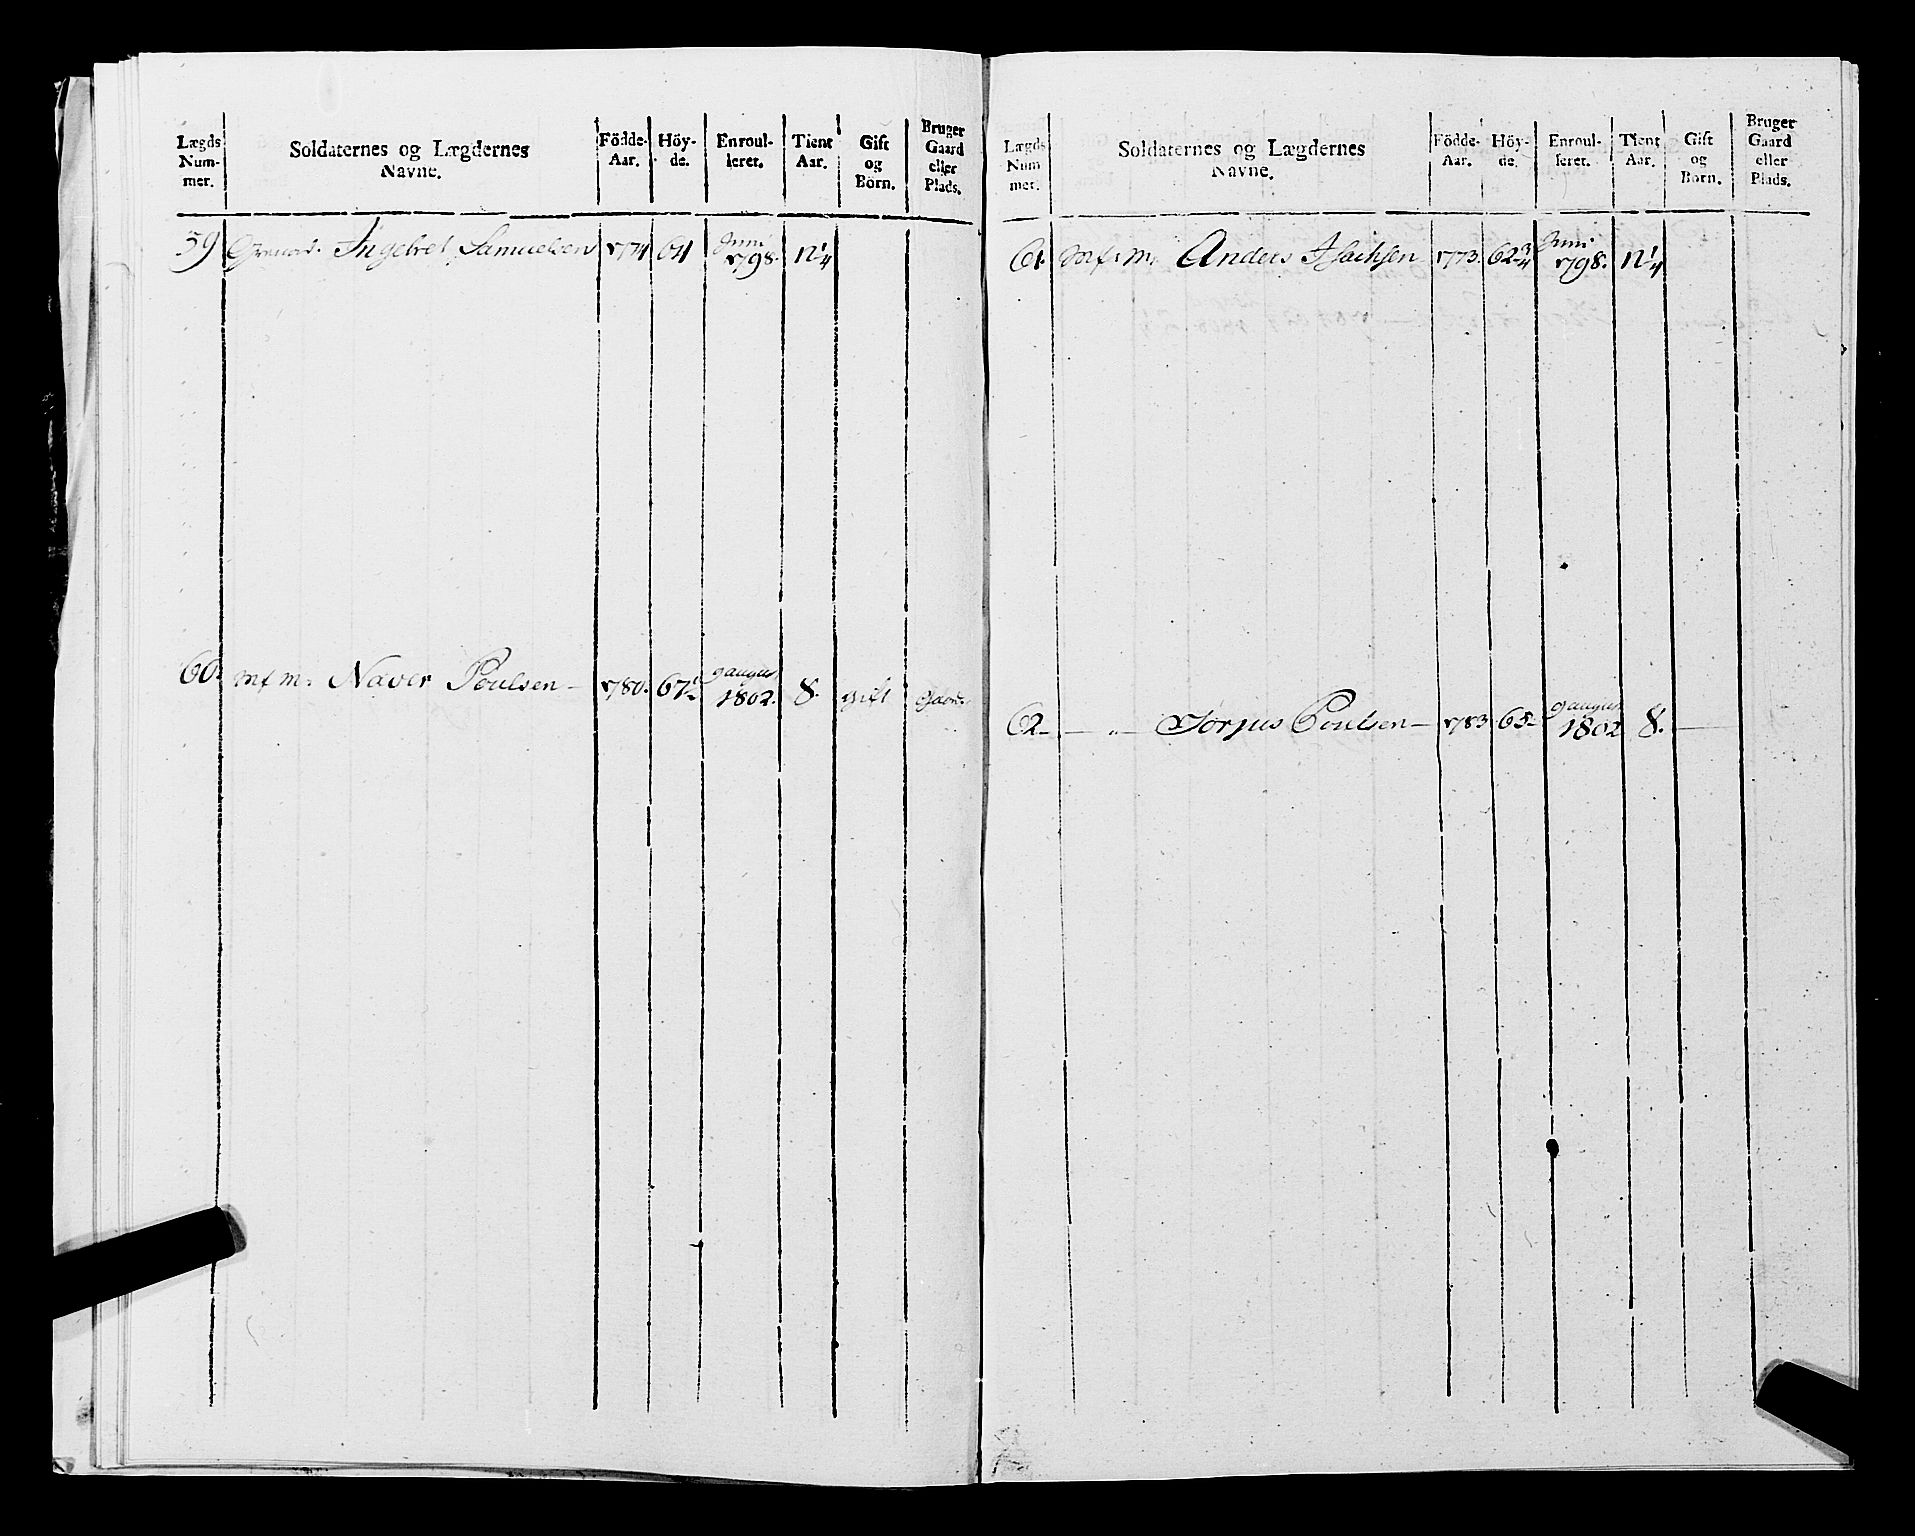 Lægds Num- mer. | Soldaternes og Lægdernes Navne. | Födde- Aar. | Höy- de. | Enroul- leret. | Tient Aar. | Gift og Börn. | Bruger Gaard eller Plads.
59 Grenad. Ingebret Samuelsen 1774 64 Juni 1798. 12 1/4
60. Mf M. Naver Poulsen – 1780. 67 1/2 9 august 1802. 8. gift Gaard.
Lægds Num mer. | Soldaternes og Lægdernes Navne. | Födde- Aar. | Höy- de. | Enroul- leret. | Tient Aar. | Gift og Börn. | Bruger Gaard eller Plads.
61. Mf: M: Anders Isachsen 1773. 62 3/4 Juni 1798. 12 1/4
62 – — „ — Torjus Poulsen – 1783 65 – 9 august 1802 8. —